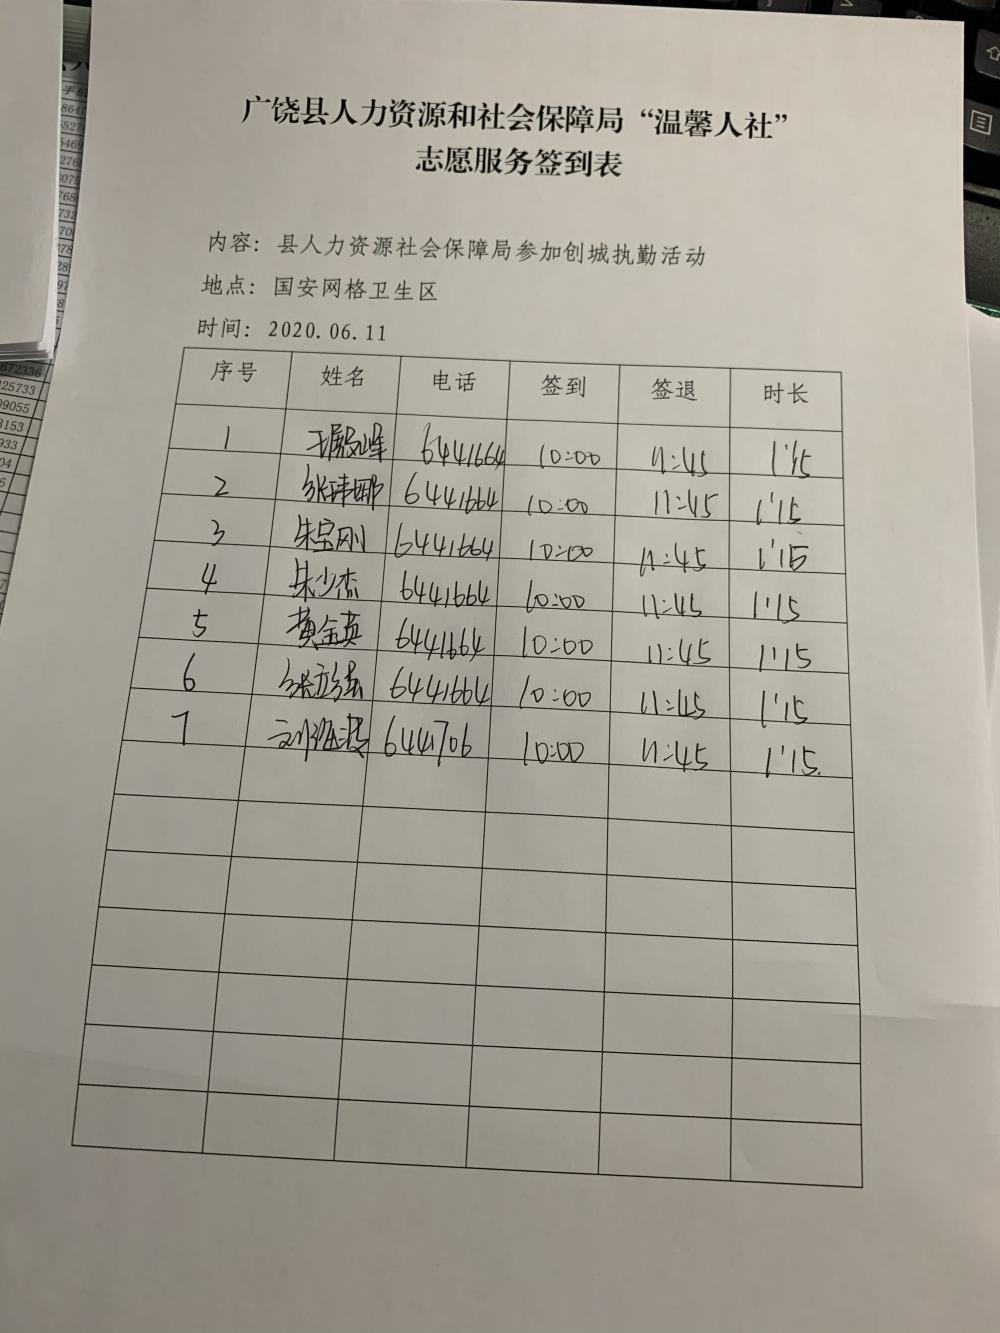 广饶县人力资源和社会保障局“温馨人社”
志愿服务签到表
内容：县人力资源社会保障局参加创城执勤活动
地点：国安网格卫生区
时间：2020.06.11
序号 姓名 电话 签到 签退 时长
1 6441664 10:00 11:45 1'15
2 6441664 10:00 11:45 1'15
3 朱宝刚 6441664 10:00 11:45 1'15
4 朱少杰 6441664 10:00 11:45 1'15
5 黄金英 6441664 10:00 11:45 1'15
6 6441664 10:00 11:45 1'15
7 6441706 10:00 11:45 1'15